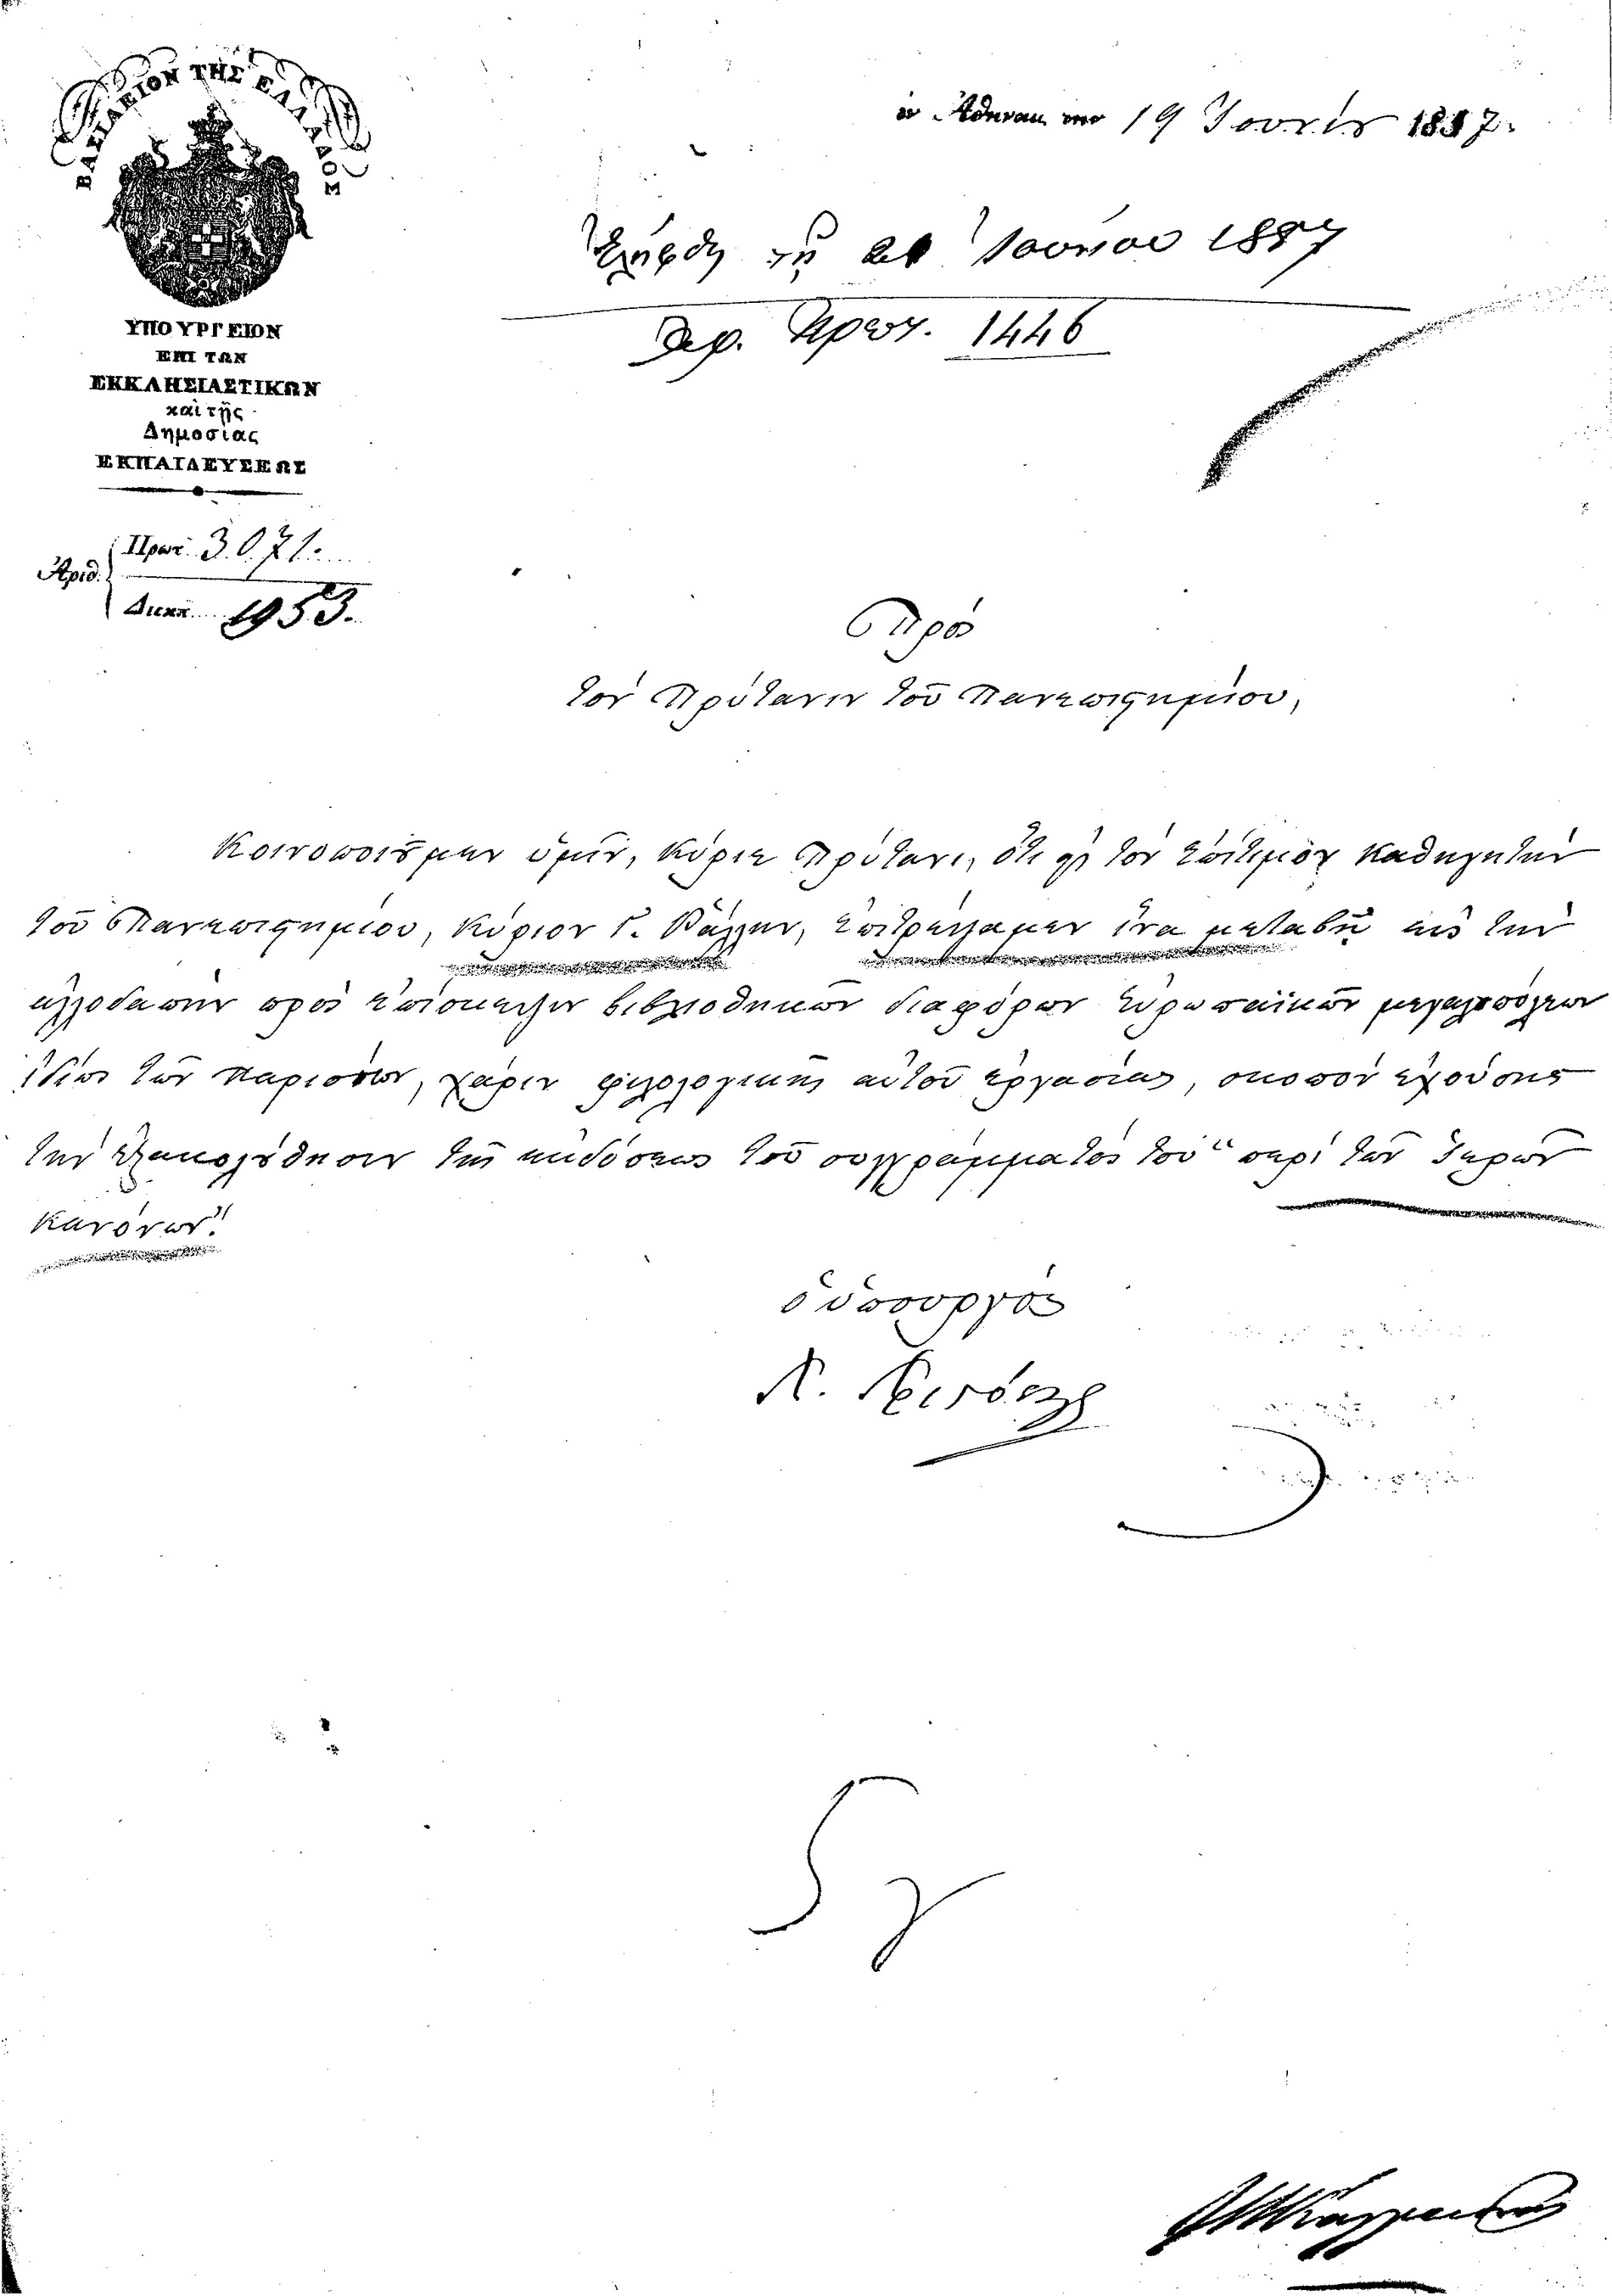 ΒΑΣΙΛΕΙΟΝ ΤΗΣ ΕΛΛΑΔΟΣ
ΥΠΟΥΡΓΕΙΟΝ
ΕΠΙ ΤΩΝ
ΕΚΚΛΗΣΙΑΣΤΙΚΩΝ
καὶ τῆς
Δημοσίας
ΕΚΠΑΙΔΕΥΣΕΩΣ
Ἀριθ.
Πρωτ. 3071.
Διεκπ. 1953.
ἐν Ἀθήναις τὴν 19 Ἰουνίου 1887.
Ἐλήφθη τῇ 21 Ἰουνίου 1887
Ἀρ. Πρωτ. 1446
Πρὸς
τὸν Πρύτανιν τοῦ Πανεπιστημίου,
Κοινοποιοῦμεν ὑμῖν, κύριε Πρύτανι, ὅτι εἰς τὸν ἐπίτιμον καθηγητὴν
τοῦ Πανεπιστημίου, κύριον Γ. Ῥάλλην, ἐπιτρέψαμεν ἵνα μεταβῇ εἰς τὴν
ἀλλοδαπὴν πρὸς ἐπίσκεψιν βιβλιοθηκῶν διαφόρων εὐρωπαϊκῶν μεγαλοπόλεων
ἰδίως τῶν Παρισίων, χάριν φιλολογικῆς αὐτοῦ ἐργασίας, σκοπὸν ἐχούσης
τὴν ἐξακολούθησιν τῆς ἐκδόσεως τοῦ συγγράμματός του "περὶ τῶν Ἱερῶν
Κανόνων".
ὁ ὑπουργὸς